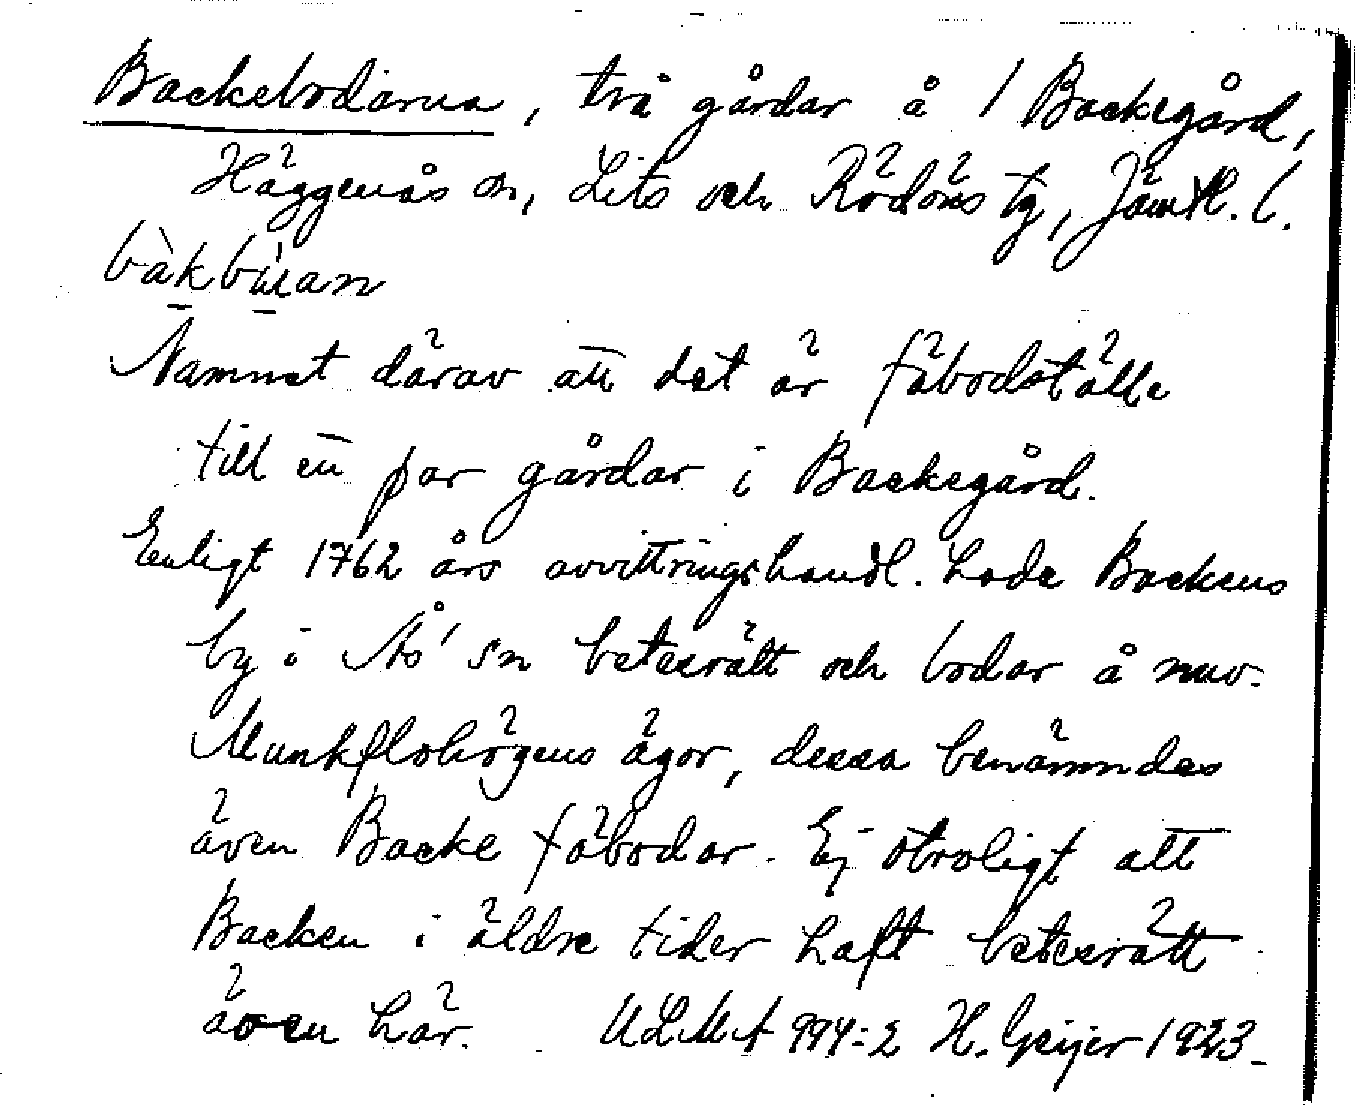 Backebodarna, två gårdar å 1 Backegård,
Häggenås sn, Lits och Rödöns tg, Jämtl. l.
bàkbúan
Namnet därav att det är fäbodställe
till ett par gårdar i Backegård.
Enligt 1762 års avvittringshandl. hade Backens
by i Ås' sn betesrätt och bodar å nuv.
Munkflohögens ägor, dessa benämndes
även Backe fäbodar. Ej otroligt att
Backen i äldre tider haft betesrätt
även här. ULMA 994:2 H. Geijer 1923.